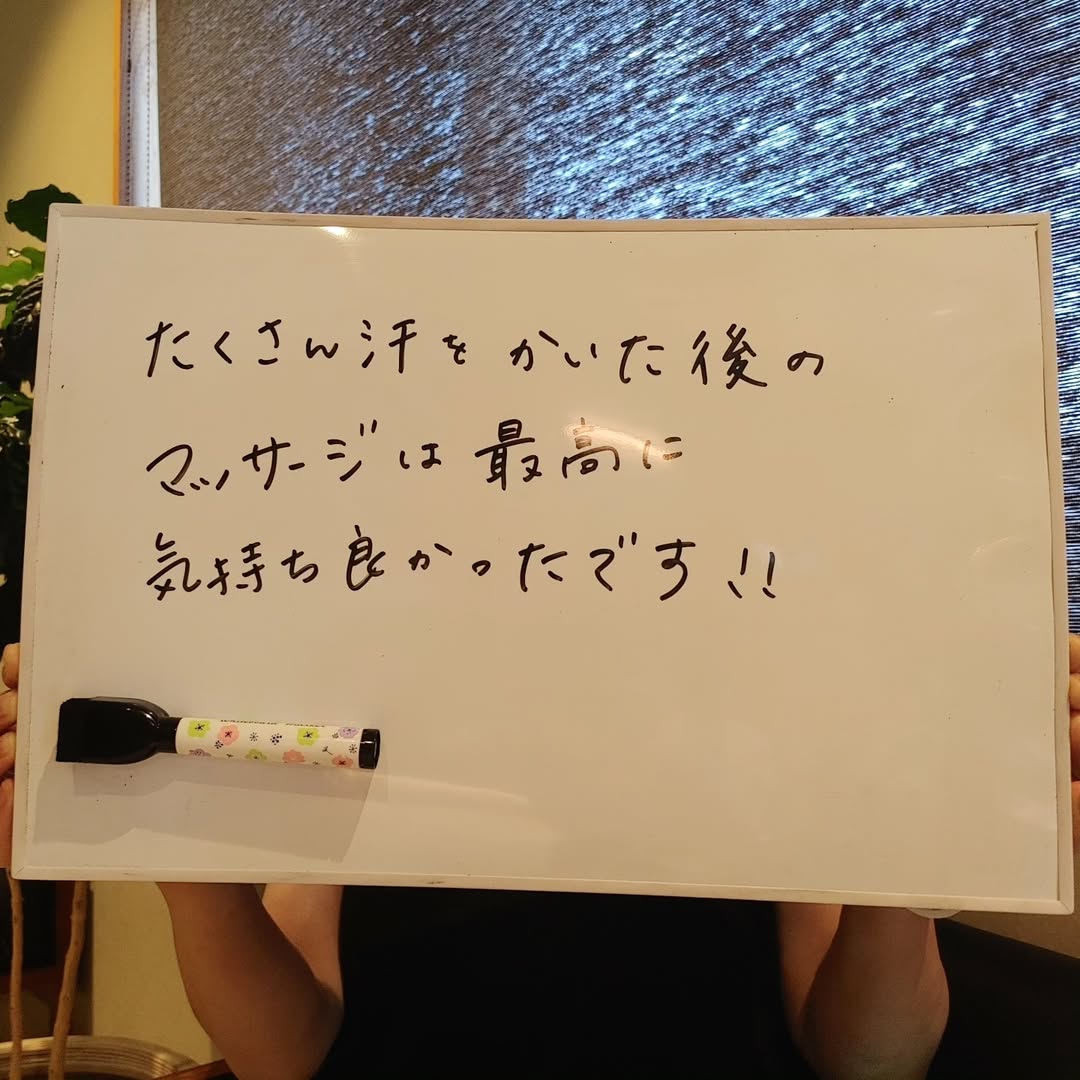 たくさん汗をかいた後の
マッサージは最高に
気持ち良かったです!!